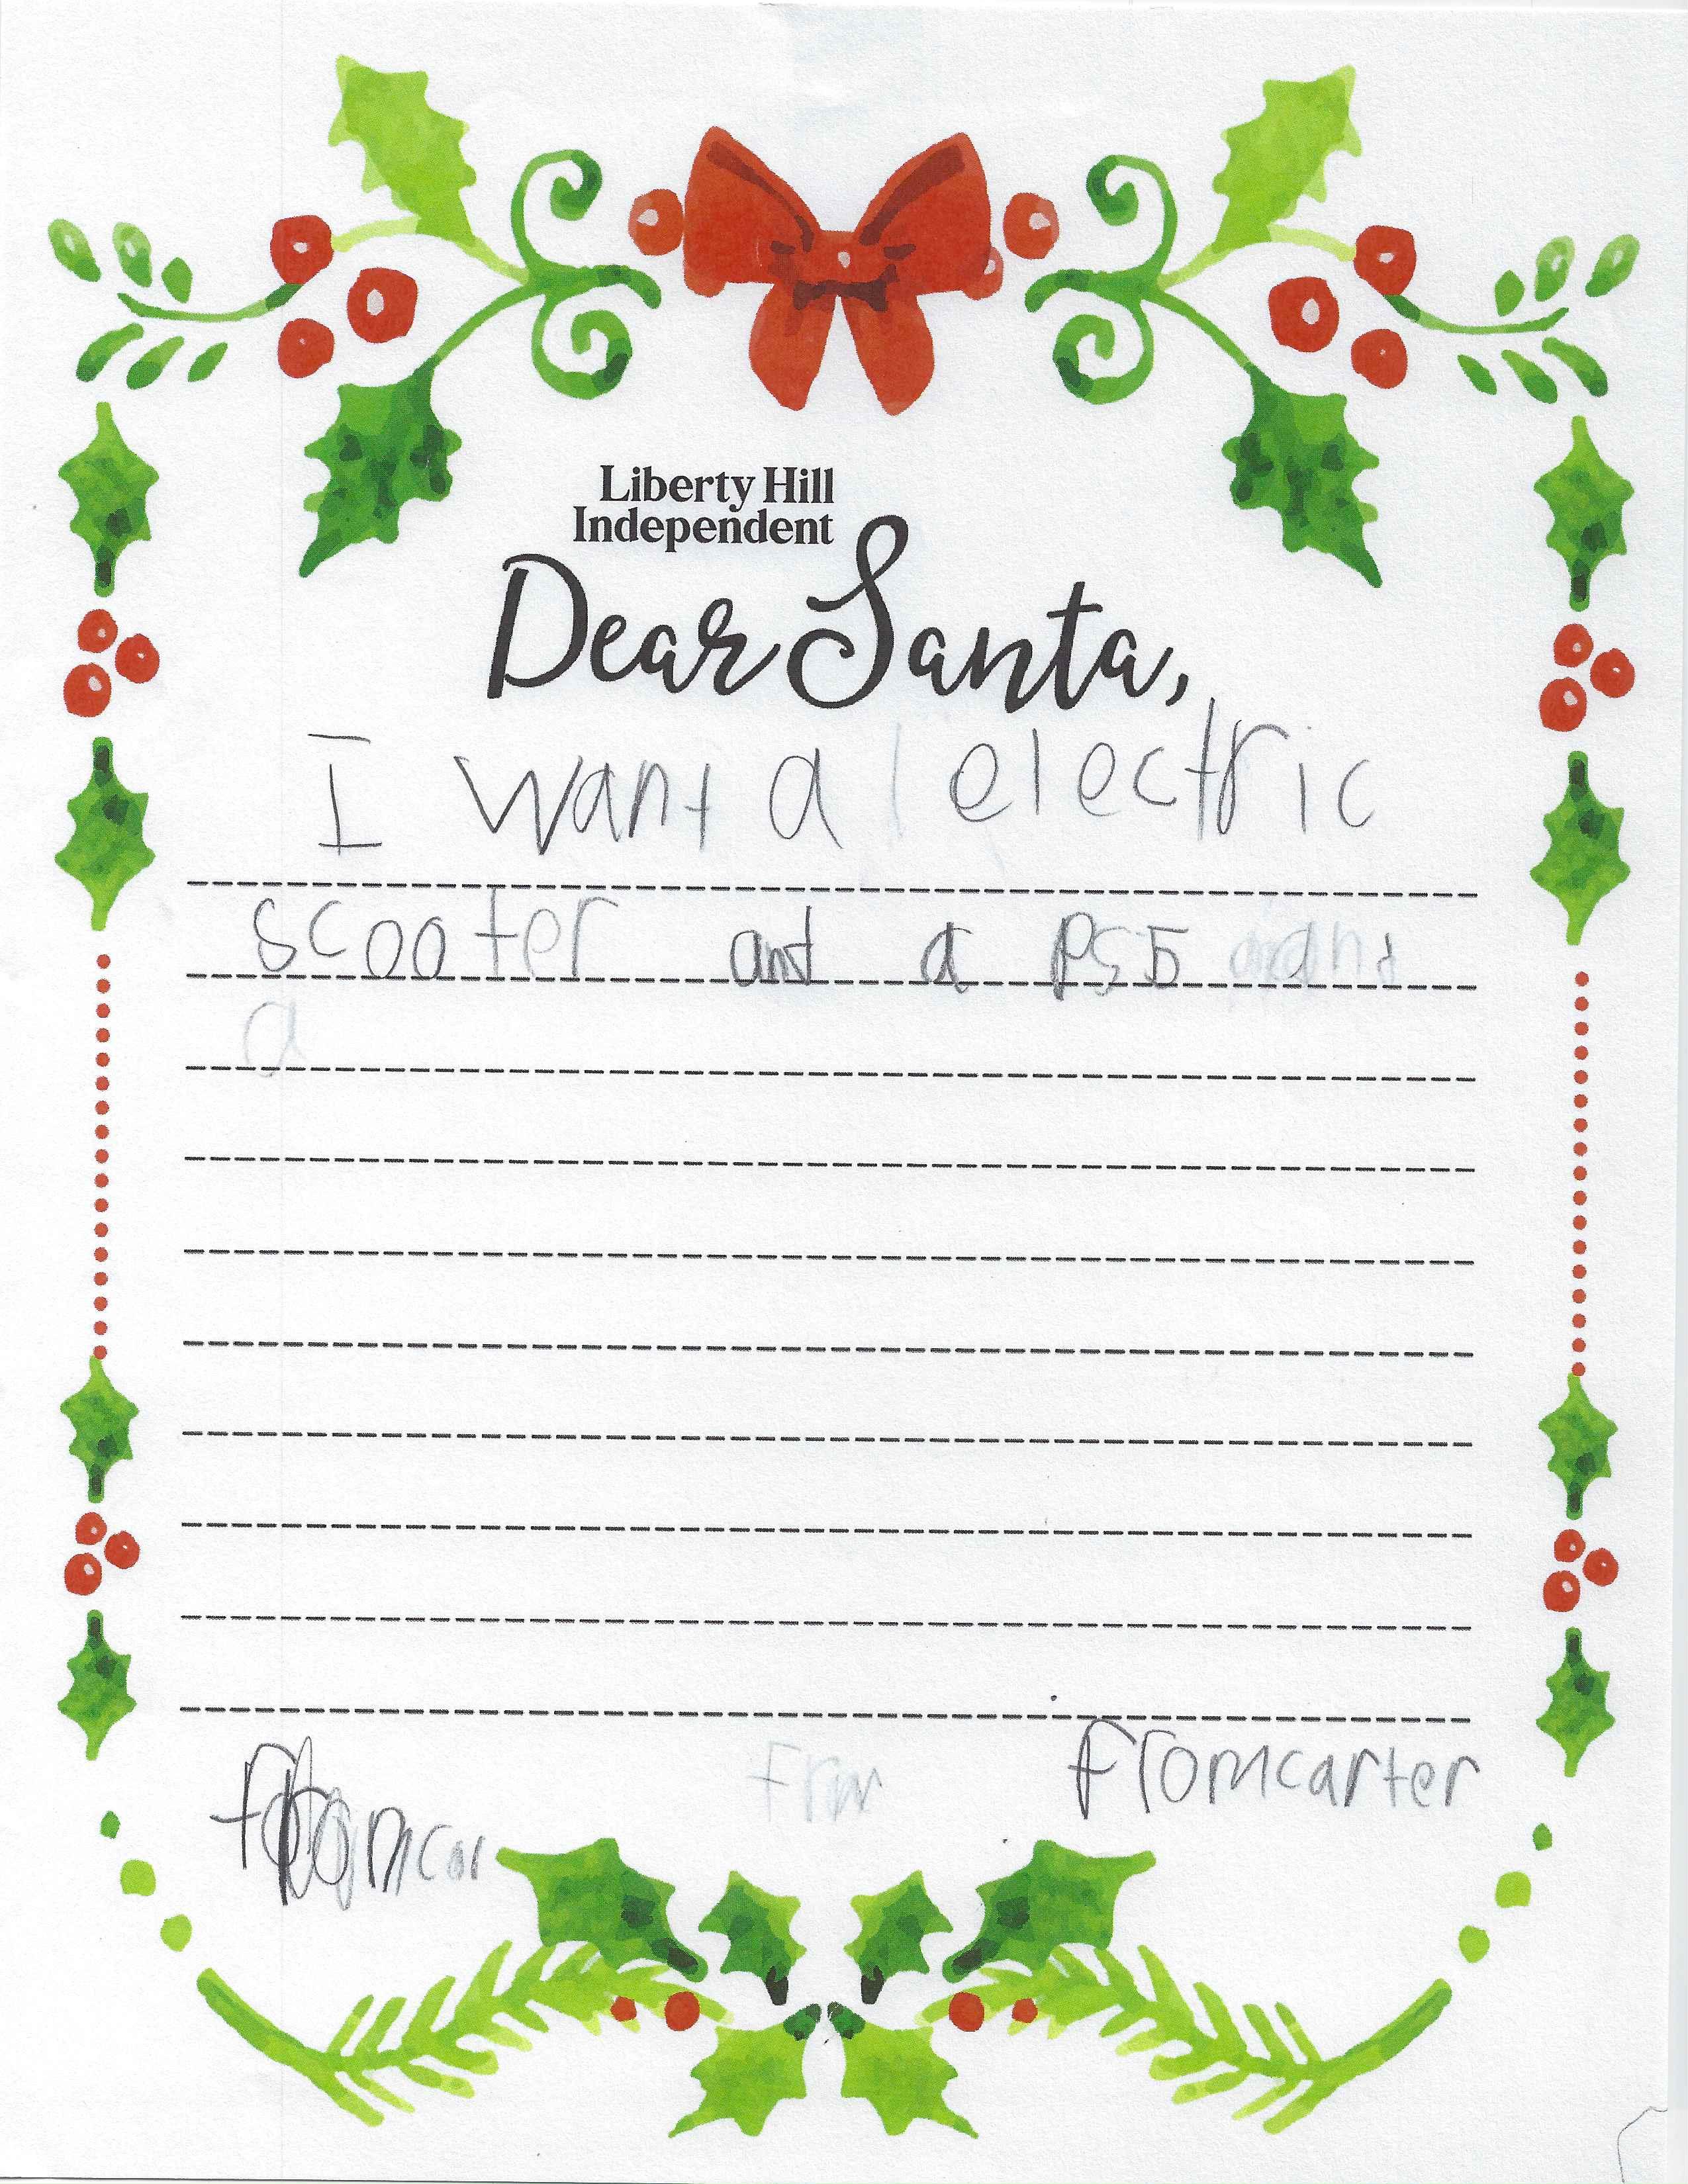 Liberty Hill
Independent
Dear Santa,
I want a electric
scooter and a PS5 and
a
from carter